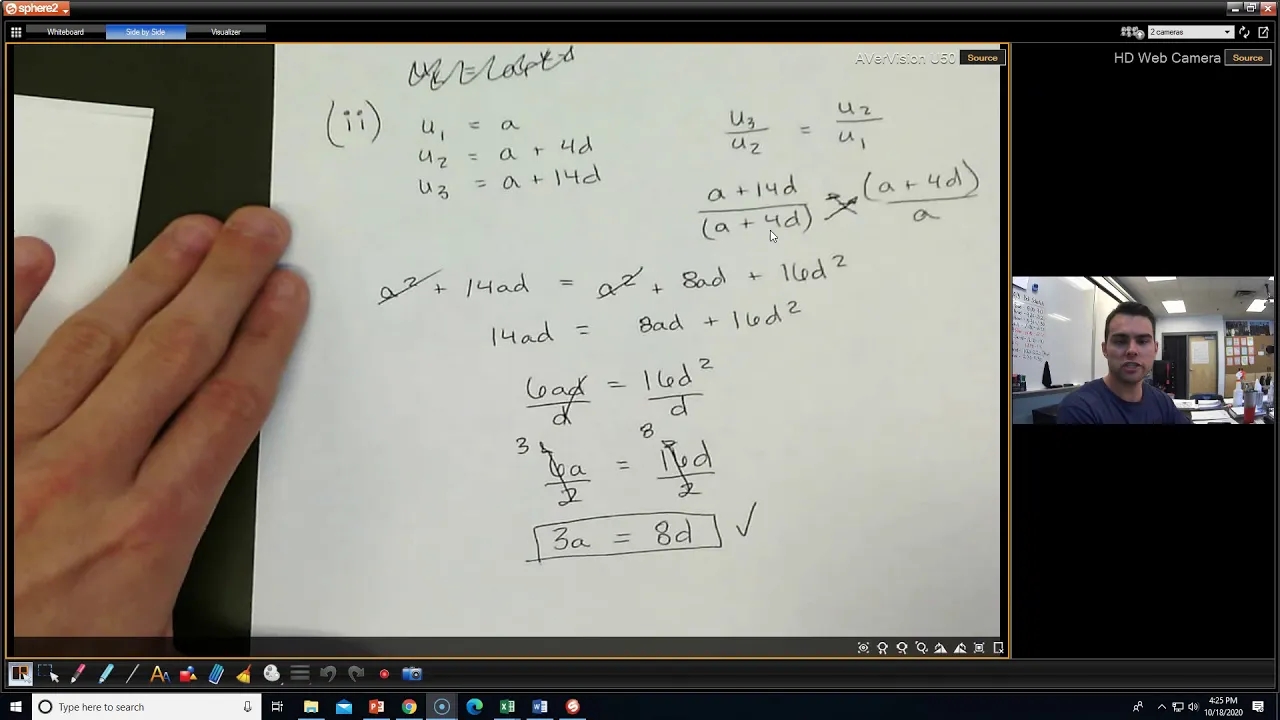 sphere2
Whiteboard
Side by Side
Visualizer
2 cameras
AVerVision U50
Source
HD Web Camera
Source
(ii)
u₁ = a
u₂ = a + 4d
u₃ = a + 14d
u₃/u₂ = u₂/u₁
a + 14d/(a + 4d) (a + 4d)/a
a² + 14ad = a² + 8ad + 16d²
14ad = 8ad + 16d²
6ad/d = 16d²/d
3 8
6a/2 = 16d/2
3a = 8d ✓
Type here to search
4:25 PM
10/18/2020